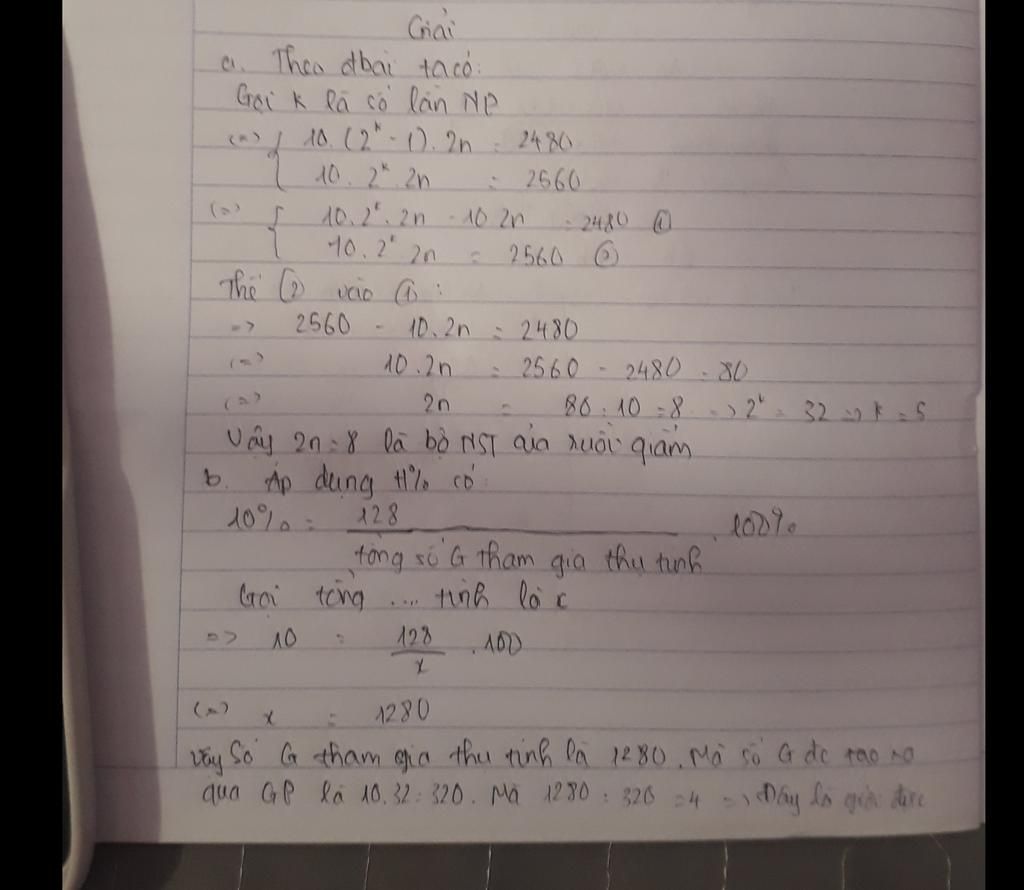 Giải
a. Theo đbài ta có:
Gọi k là số lần NP
(=) { 10. (2^k - 1). 2n = 2480
10. 2^k. 2n = 2560
(=) { 10. 2^k. 2n - 10 2n = 2480 ①
10. 2^k 2n = 2560 ②
Thế ② vào ①:
=> 2560 - 10. 2n = 2480
(=) 10. 2n = 2560 - 2480 = 80
(=) 2n = 80 : 10 = 8 => 2^k = 32 => k = 5
Vậy 2n = 8 là bộ NST của ruồi giấm
b. Áp dụng H% có
10% = 128 / tổng số G tham gia thụ tinh . 100%
Gọi tổng .... tinh là x
=> 10 = 128 / x . 100
(=) x = 1280
Vậy số G tham gia thụ tinh là 1280. Mà số G đc tạo ra
qua GP là 10.32 = 320. Mà 1280 : 320 = 4 => Đây là giới đực